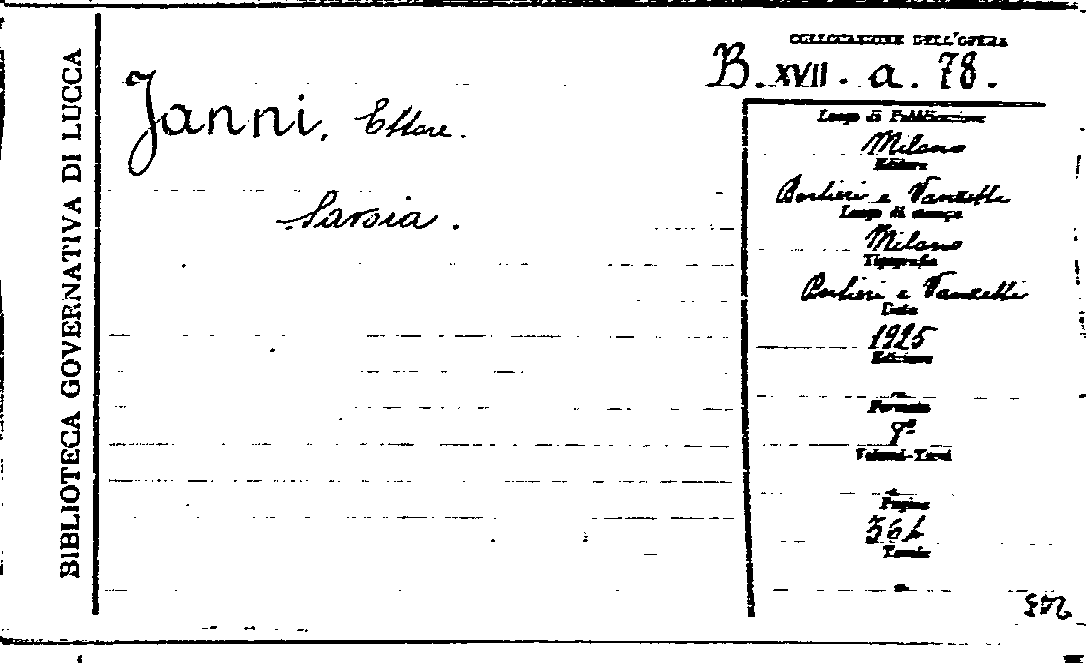 BIBLIOTECA GOVERNATIVA DI LUCCA
Janni, Ettore.
Savoia.
COLLOCAZIONE DELL'OPERA
B. XVII. a. 78.
Luogo di Pubblicazione
Milano
Editore
Bertieri e Vanzetti
Luogo di stampa
Milano
Tipografia
Bertieri e Vanzetti
Data
1925
Edizione
Formato
8°
Volumi-Tomi
Pagine
Tavole